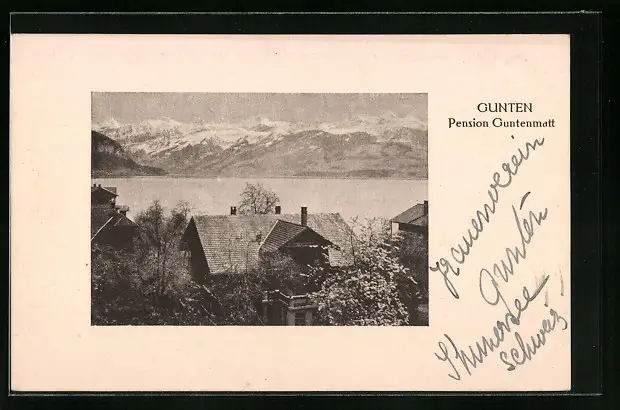 GUNTEN
Pension Guntenmatt
Frauenverein
Gunten
Thunersee
Schweiz